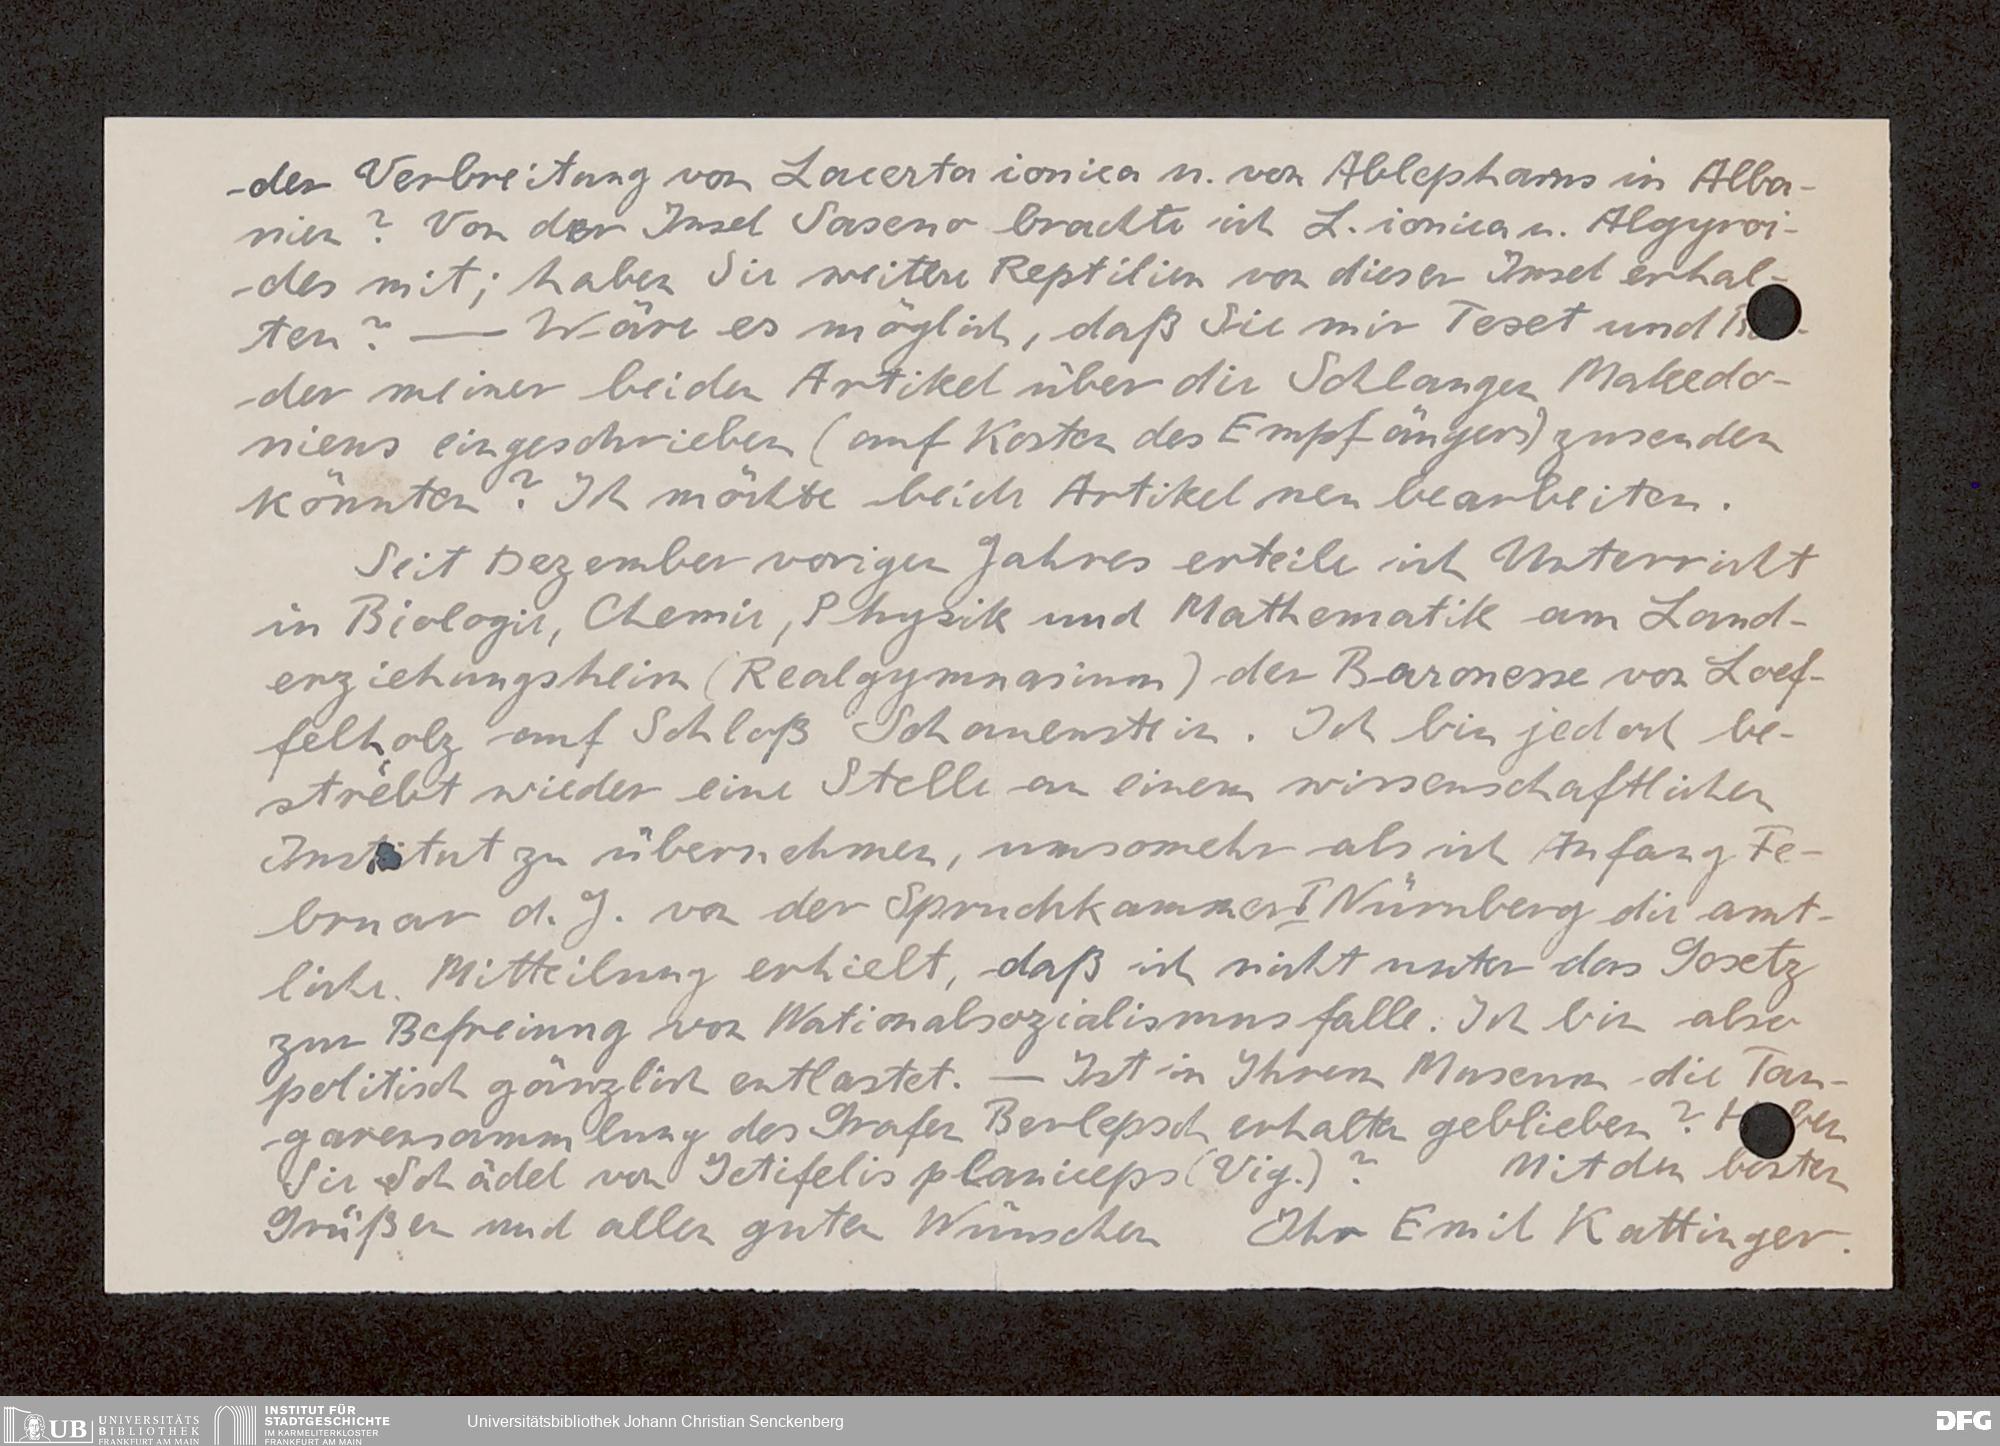 der Verbreitung von Lacerta ionica u. von Ablepharus in Alba-
nien? Von der Insel Saseno brachte ich L. ionica u. Algyroi-
des mit; haben Sie weitere Reptilien von dieser Insel erhal-
ten? — Wäre es möglich, daß Sie mir Text und
der meiner beiden Artikel über die Schlangen Makedo-
niens eingeschrieben (auf Kosten des Empfängers) zusenden
könnten? Ich möchte beide Artikel neu bearbeiten.
Seit Dezember vorigen Jahres erteile ich Unterricht
in Biologie, Chemie, Physik und Mathematik am Land-
erziehungsheim (Realgymnasium) der Baronesse von Loef-
felholz auf Schloß Schauenstein. Ich bin jedoch be-
strebt wieder eine Stelle an einem wissenschaftlichen
Institut zu übernehmen, umsomehr als ich Anfang Fe-
bruar d. J. von der Spruchkammer I Nürnberg die amt-
liche Mitteilung erhielt, daß ich nicht unter das Gesetz
zur Befreiung von Nationalsozialismus falle. Ich bin also
politisch gänzlich entlastet. — Ist in Ihrem Museum die Tan-
garensammlung des Grafen Berlepsch erhalten geblieben? Haben
Sie Schädel von Ictifelis planiceps (Vig.)? Mit den besten
Grüßen und allen guten Wünschen Ihr Emil Kattinger.
UB UNIVERSITÄTS
BIBLIOTHEK
FRANKFURT AM MAIN
INSTITUT FÜR
STADTGESCHICHTE
IM KARMELITERKLOSTER
FRANKFURT AM MAIN
Universitätsbibliothek Johann Christian Senckenberg
DFG